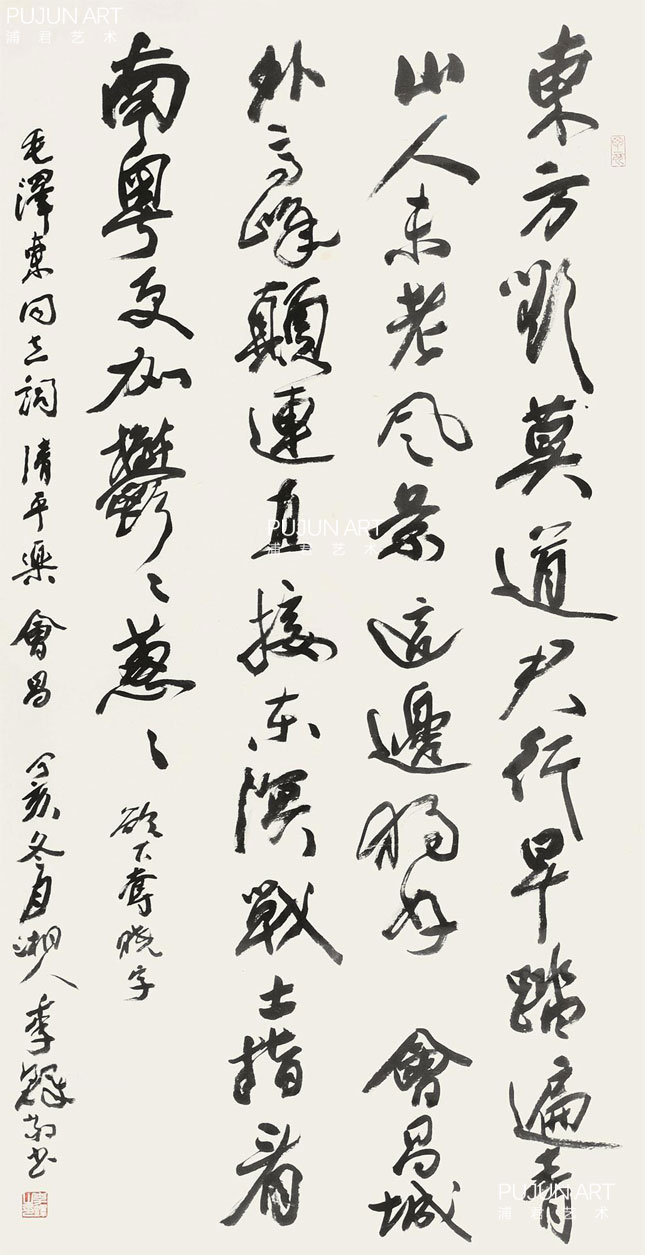 PUJUN ART
浦君艺术
東方欲莫道君行早踏遍青
山人未老风景這邊獨好 會昌城
外高峰顛連直接东溟戰士指看
南粵更加鬱〻蔥〻 欲下奪曉字
毛澤東同志詞 清平樂 會昌 丁亥冬月湘人李鐸书
PUJUN ART
浦君艺术
PUJUN ART
浦君艺术